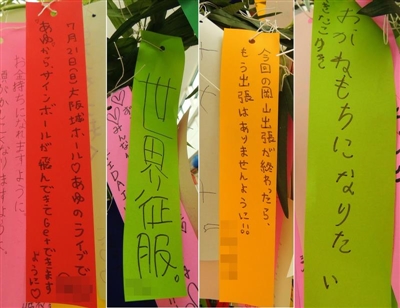 7月21日(日)大阪城ホール♡あゆのライブで
あゆから、サインボールが飛んできてGetできます
ように♡
お金持ちになれますように。
世界征服。
みんな
今回の岡山出張が終わったら、
もう出張はありませんように!!
おかねもちになりたい